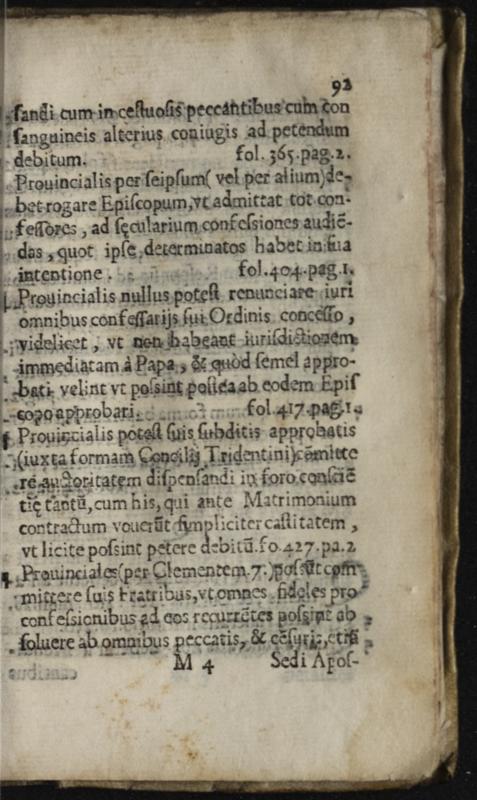 92
sandi cum in cestuosis peccantibus cum con
sanguineis alterius coniugis ad petendum
debitum. fol. 365.pag.2.
Prouincialis per seipsum( vel per alium)de-
bet rogare Episcopum,vt admittat tot con-
fessores, ad sęcularium confessiones audiē-
das, quot ipse determinatos habet in sua
intentione. fol.404.pag.1.
Prouincialis nullus potest renunciare iuri
omnibus confessarijs sui Ordinis concesso,
videlicet, vt non habeant iurisdictionem
immediatam à Papa, & quòd semel appro-
bati velint vt possint postea ab eodem Epis
copo approbari. fol 417.pag.1.
Prouincialis potest suis subditis approbatis
(iuxta formam Concilij Tridentini)cōmitte
re auctoritatem dispensandi in foro consciē
tię tantū, cum his, qui ante Matrimonium
contractum vouerūt simpliciter castitatem,
vt licite possint petere debitū. fo.427.pa.2
Prouinciales(per Clementem.7.)possūt com
mittere suis Fratribus, vt omnes fideles pro
confessionibus ad eos recurrētes possint ab
soluere ab omnibus peccatis, & cēsuris, etiā
M 4 Sedi Apos-